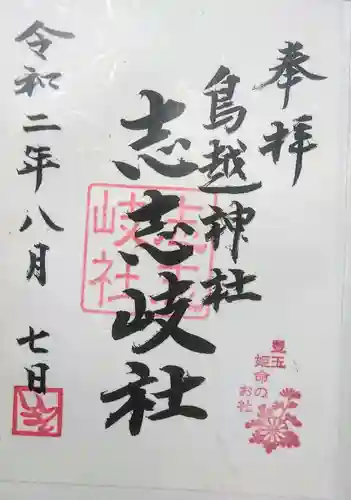 奉拝
鳥越神社
志志岐社
令和二年八月七日
志志岐社
豊玉
姫命の
お社